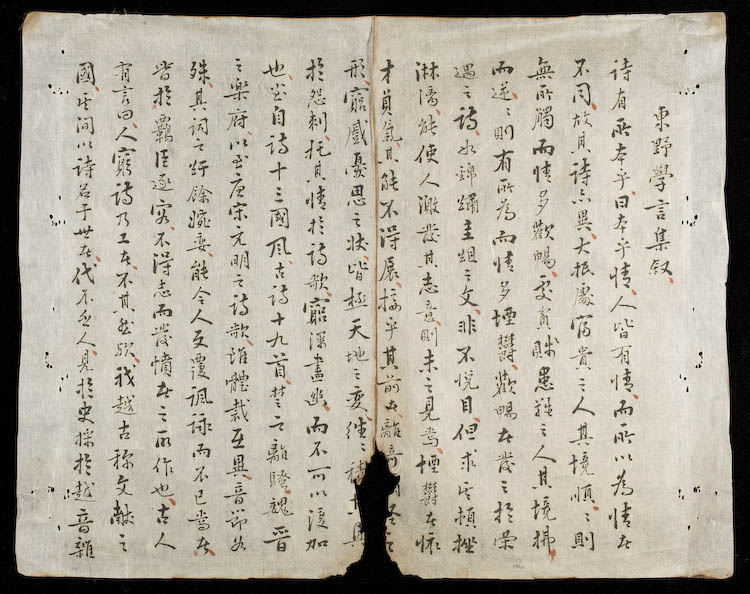 東野學言集叙
詩有所本乎曰本乎情人皆有情而所以為情者
不同故其詩亦異大抵處富貴之人其境順〻則
無所觸而情多歡暢處貧賤患難之人其境拂
而逆〻則有所為而情多堙鬱歡暢者發之於榮
遇之詩如錦繡圭組之文非不悅目但求其頓挫
淋漓能使人激發其志意則未之見焉堙鬱者懷
才負氣其能不得展接乎其前者離奇怪之
形窮戚憂思之狀皆極天地之變徃〻積其興
於怨刺托其情於詩歌窮深盡幽而不可以復加
也自詩十三國風古詩十九首楚之離騷魏晋
之樂府以至唐宋元明之詩歌雖體裁互異音節各
殊其詞之紆餘婉委能令人反覆諷詠而不已焉者
皆於羈臣逐客不得志而發憤者之所作也古人
有言曰人窮詩乃工者不其然歟我越古称文献之
國其间以詩名于世者代不乏人見於史採於越音雜